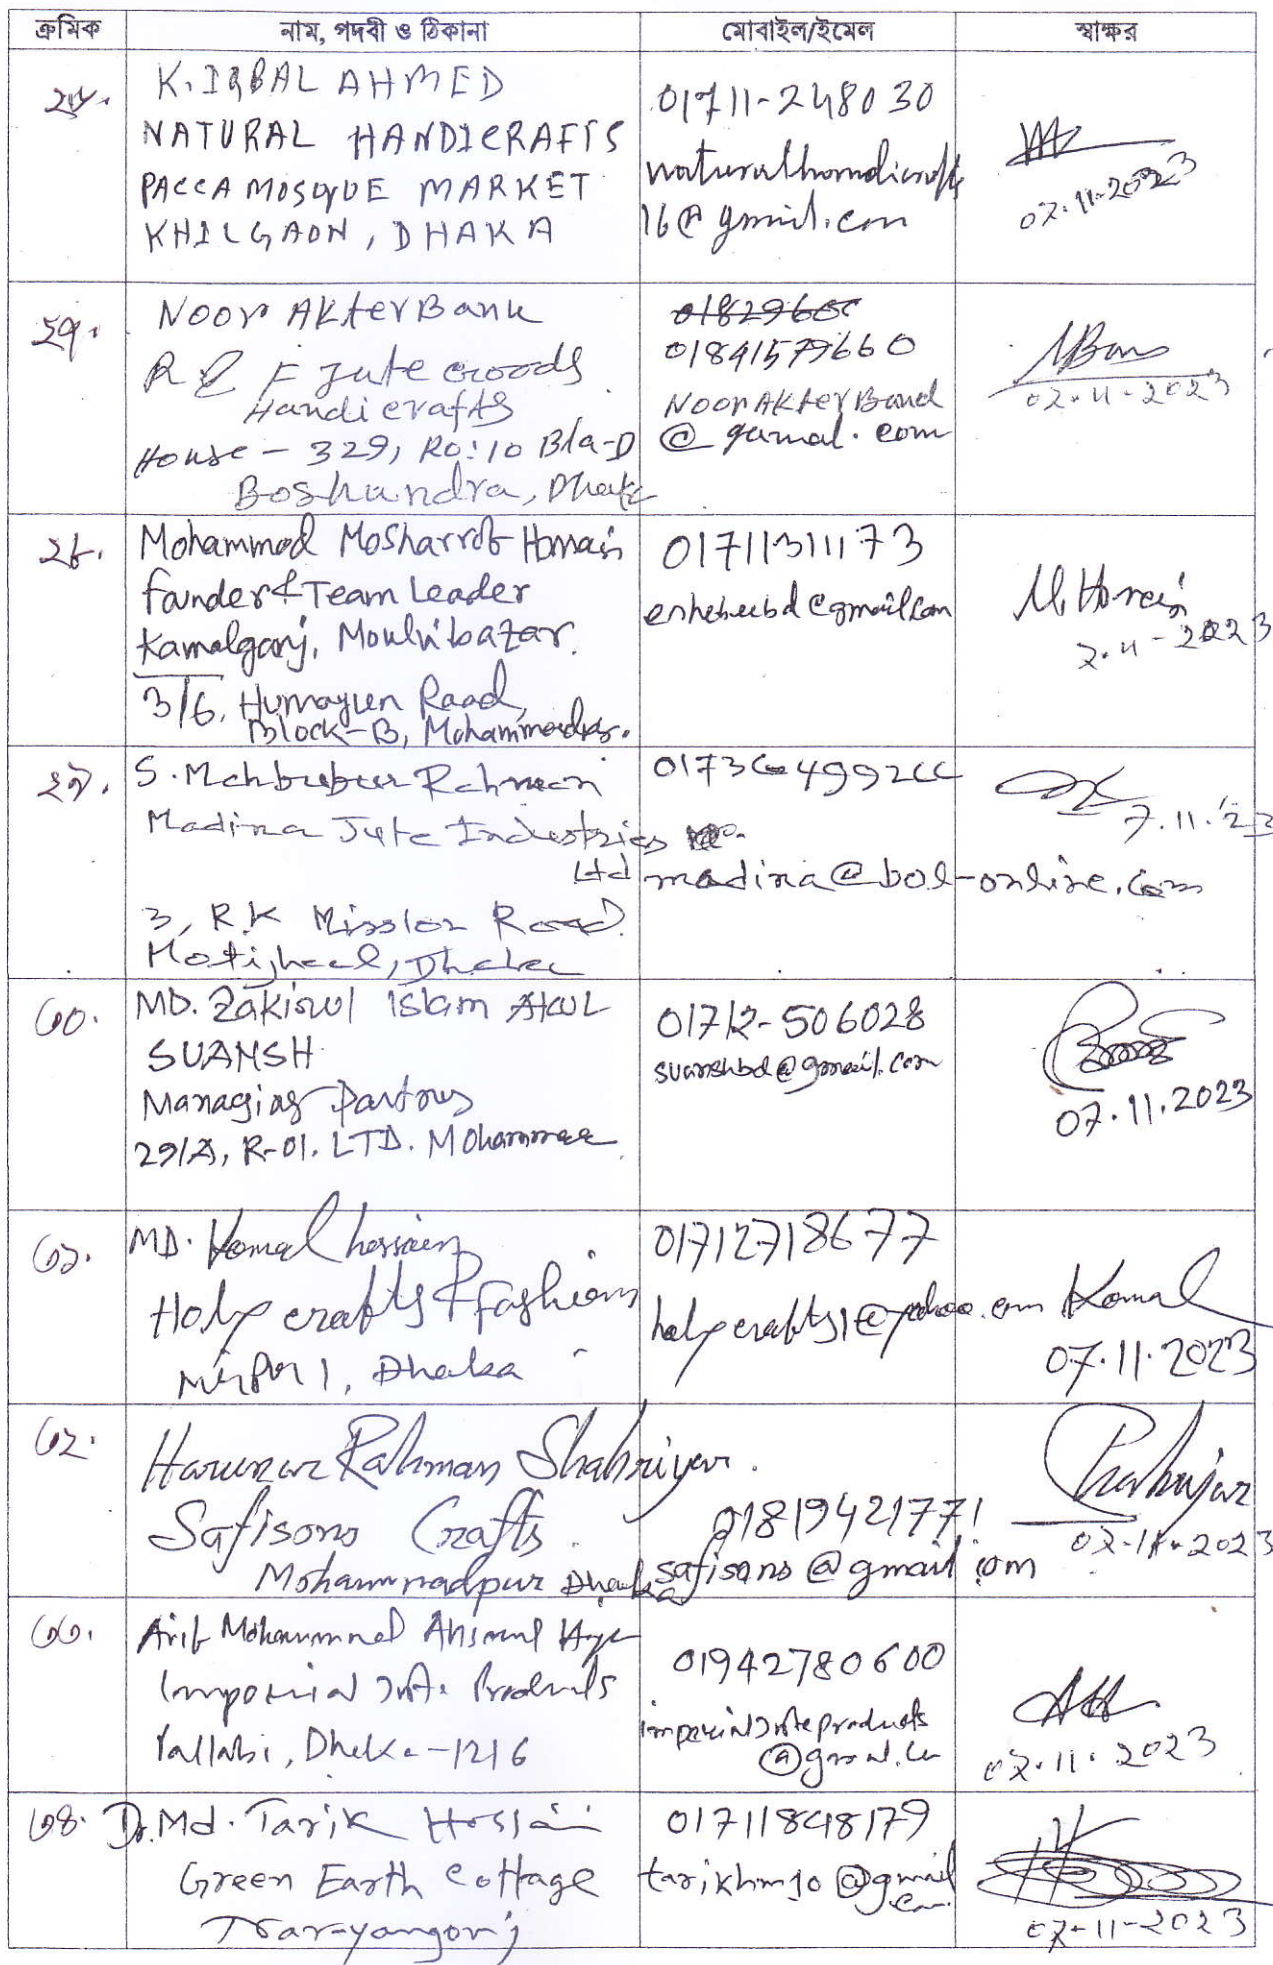 ক্রমিক নাম, পদবী ও ঠিকানা মোবাইল/ইমেল স্বাক্ষর
২৬. K. IQBAL AHMED
NATURAL HANDICRAFTS
PACCA MOSQUE MARKET
KHILGAON, DHAKA
01711-248030
naturalhandicrafts
16@gmail.com
07.11.2023
২৭. Noor Akter Banu
R & F Jute Goods
Handicrafts
House - 329, Ro: 10 Bla-D
Boshundra, Dhaka
01841579660
Noor Akter Band
@ gamal.com
07-11-2023
২৮. Mohammod Mosharrof Hossain
founder & Team Leader
Kamalganj, Moulvibazar.
3/6, Humayun Road,
Block-B, Mohammadpr.
01711311173
@gmail.com
M. Hossain
7.11-2023
২৯. S. Mahbubur Rahman
Madina Jute Industries
Ltd
3, R.K Mission Road
Motijheel, Dhaka
madina@bol-online.com
7.11.23
৩০. MD. Zakirul Islam
SUANSH
Managing Partner
29/A, R-01. LTD.
01712-506028
suanshbd@gmail.com
07.11.2023
৩১. MD. Komal hossain
Holy crafts & fashions
Mirpur 1, Dhaka
01712718677
holycrafts1@yahoo.com
Komal
07.11.2023
৩২. Harunur Rahman Shahriyar.
Safisons Crafts.
Mohammadpur Dhaka
01819421771
safisons@gmail.com
Shahriyar
07-11-2023
৩৩. Arif Mohammad Ahsanul Haque
Imperial Jute Products
Pallabi, Dhaka-1216
01942780600
imperialjuteproducts
@gmail.com
07.11.2023
৩৪. Dr. Md. Tarik Hossain
Green Earth Cottage
Narayangonj
01711848179
tarikhm10@gmail
.com
07-11-2023